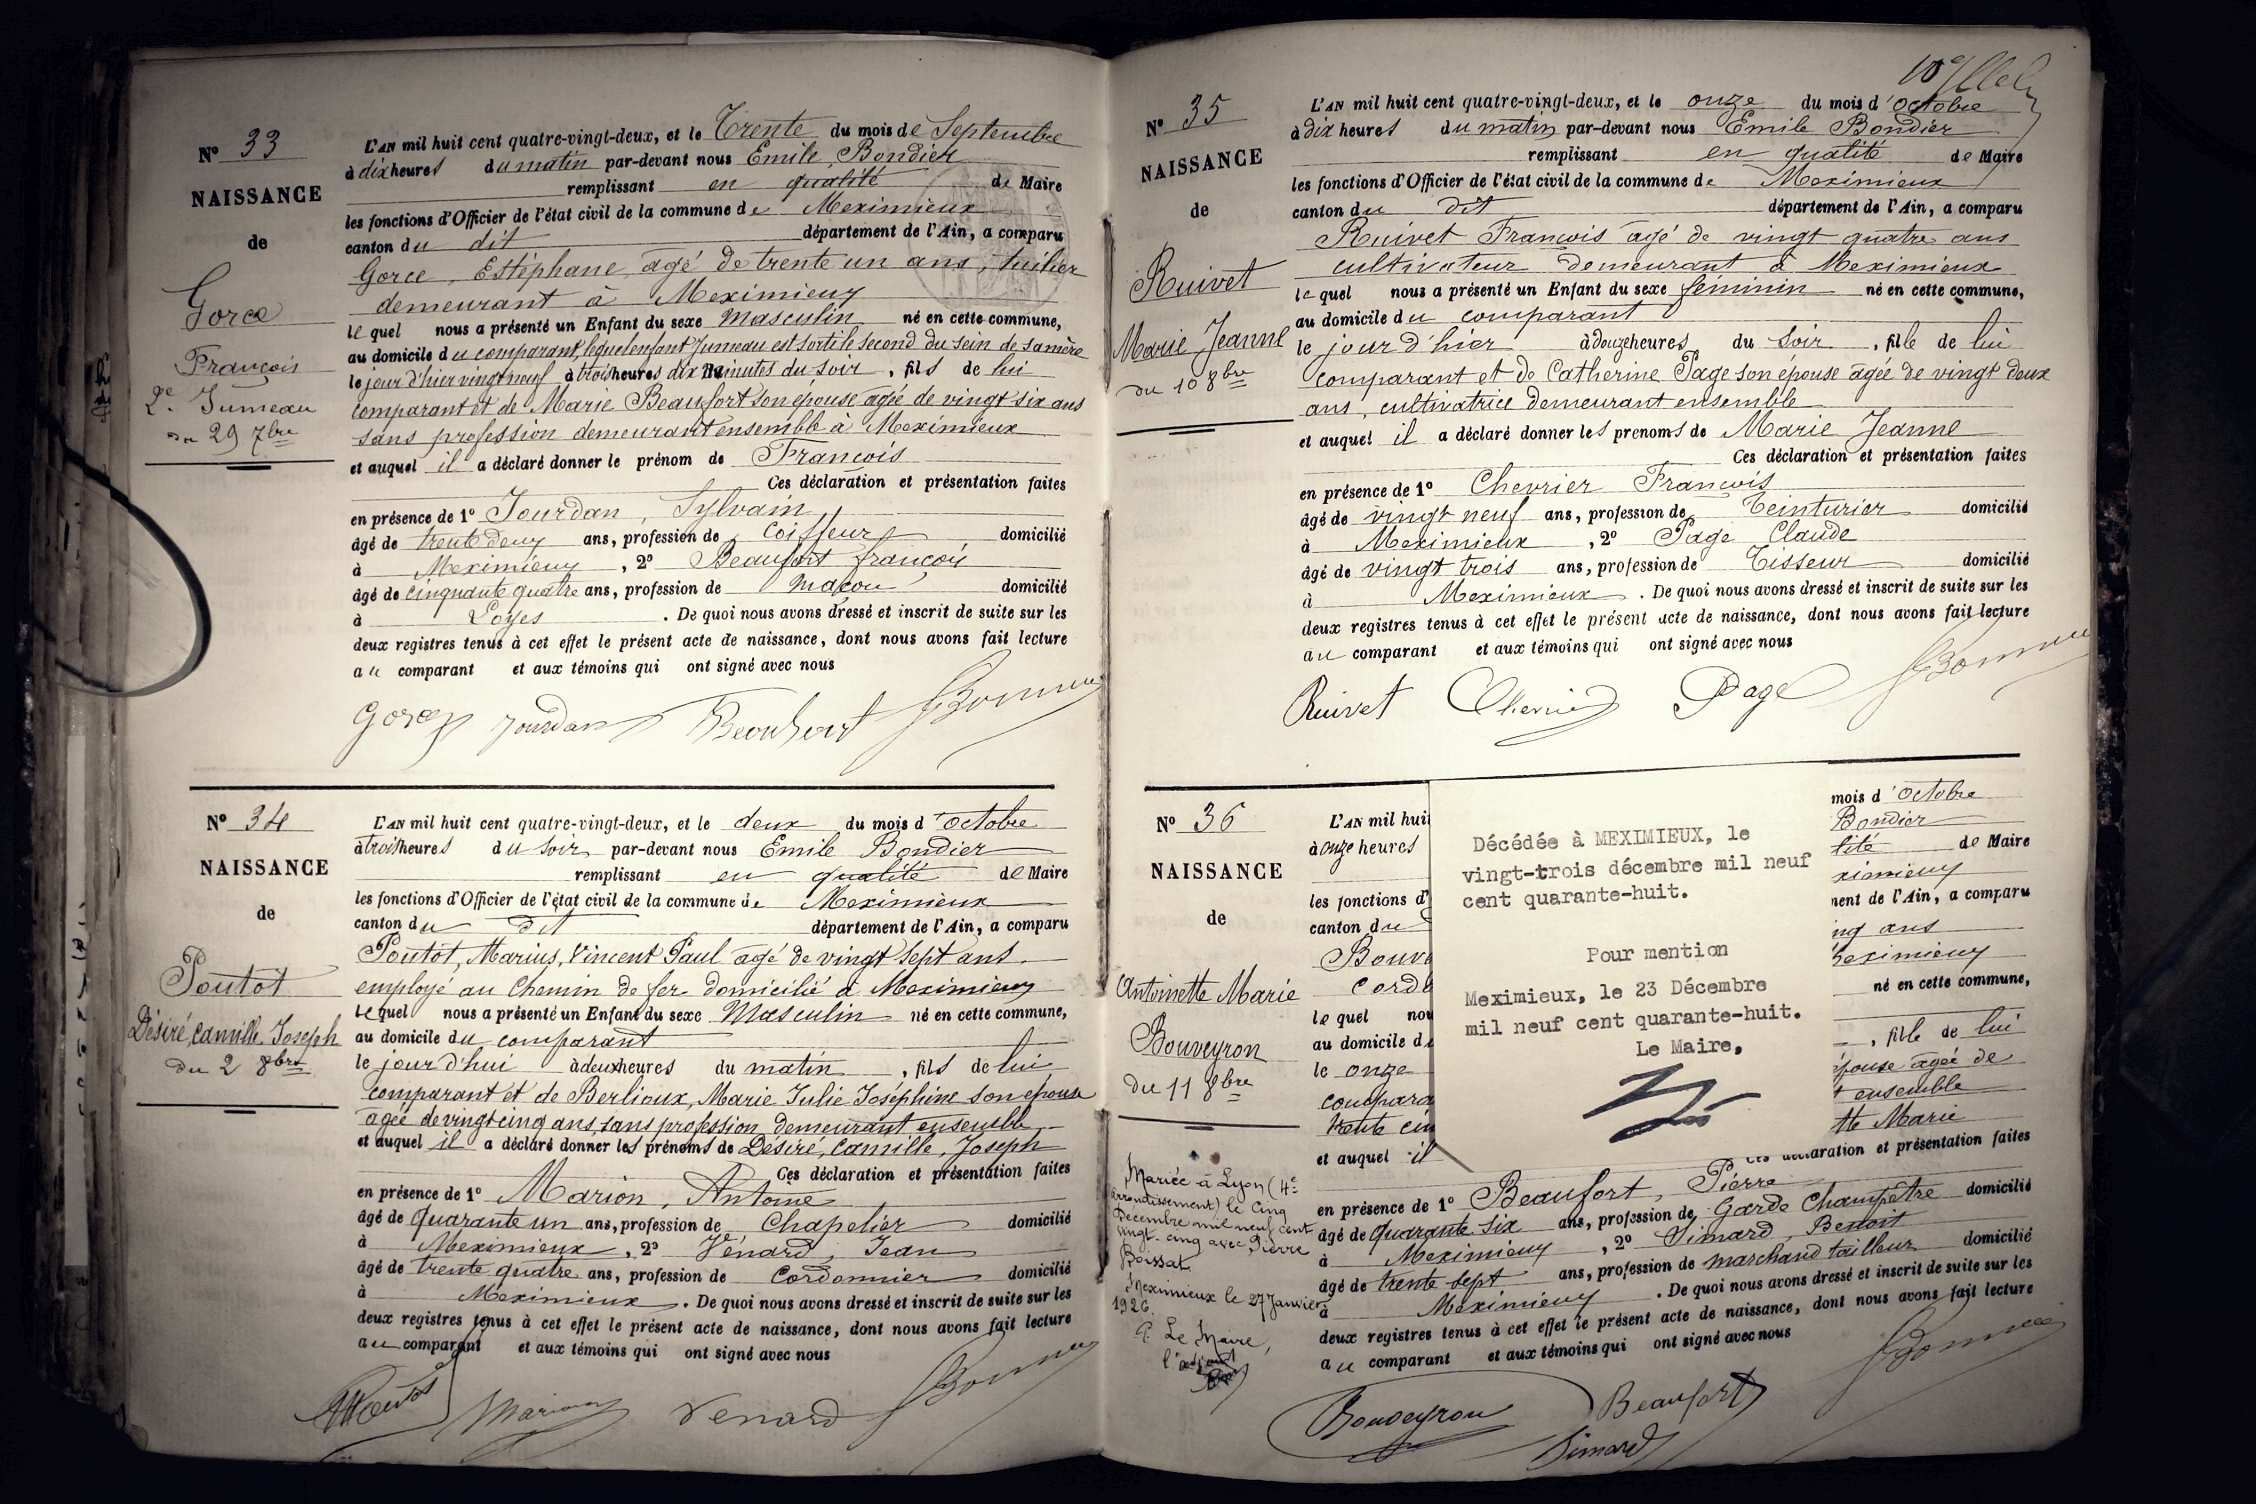 Nº 33
NAISSANCE
de
Gorce
François
2e. Jumeau
du 29 7bre
L'AN mil huit cent quatre-vingt-deux, et le Trente du mois de Septembre
à dix heures du matin par-devant nous Emile Bondier
remplissant en qualité de Maire
les fonctions d'Officier de l'état civil de la commune de Meximieux
canton du dit département de l'Ain, a comparu
Gorce, Estéphane, agé de trente un ans, tuilier
demeurant à Meximieux
lequel nous a présenté un Enfant du sexe Masculin né en cette commune,
au domicile du comparant, lequel enfant Jumeau est sorti le second du sein de sa mère
le jour d'hier vingt neuf à trois heures dix minutes du soir, fils de lui
comparant et de Marie Beaufort son épouse agée de vingt six ans
sans profession demeurant ensemble à Meximieux
et auquel il a déclaré donner le prénom de François
Ces déclaration et présentation faites
en présence de 1º Jourdan, Sylvain
âgé de trente deux ans, profession de Coiffeur domicilié
à Meximieux, 2º Beaufort françois
âgé de cinquante quatre ans, profession de maçon domicilié
à Loyes. De quoi nous avons dressé et inscrit de suite sur les
deux registres tenus à cet effet le présent acte de naissance, dont nous avons fait lecture
au comparant et aux témoins qui ont signé avec nous
Gorce Jourdan Beaufort
Nº 34
NAISSANCE
de
Poutot
Désiré, Camille, Joseph
du 2 8bre
L'AN mil huit cent quatre-vingt-deux, et le deux du mois d'octobre
à trois heures du soir par-devant nous Emile Bondier
remplissant en qualité de Maire
les fonctions d'Officier de l'état civil de la commune de Meximieux
canton du dit département de l'Ain, a comparu
Poutot, Marius, Vincent Paul agé de vingt sept ans
employé au Chemin de fer domicilié à Meximieux
lequel nous a présenté un Enfant du sexe Masculin né en cette commune,
au domicile du comparant
le jour d'hui à deux heures du matin, fils de lui
comparant et de Berlioux, Marie Julie Joséphine son épouse
agée de vingt cinq ans, sans profession demeurant ensemble
et auquel il a déclaré donner les prénoms de Désiré, Camille, Joseph
Ces déclaration et présentation faites
en présence de 1º Marion, Antoine
âgé de Quarante un ans, profession de Chapelier domicilié
à Meximieux, 2º Vénard, Jean
âgé de trente quatre ans, profession de Cordonnier domicilié
à Meximieux. De quoi nous avons dressé et inscrit de suite sur les
deux registres tenus à cet effet le présent acte de naissance, dont nous avons fait lecture
au comparant et aux témoins qui ont signé avec nous
Poutot Marion Venard
Nº 35
NAISSANCE
de
Ruivet
Marie Jeanne
du 10 8bre
L'AN mil huit cent quatre-vingt-deux, et le onze du mois d'octobre
à dix heures du matin par-devant nous Emile Bondier
remplissant en qualité de Maire
les fonctions d'Officier de l'état civil de la commune de Meximieux
canton du dit département de l'Ain, a comparu
Ruivet François agé de vingt quatre ans
cultivateur demeurant à Meximieux
lequel nous a présenté un Enfant du sexe féminin né en cette commune,
au domicile du comparant
le jour d'hier à douze heures du soir, fille de lui
comparant et de Catherine Page son épouse agée de vingt deux
ans, cultivatrice demeurant ensemble
et auquel il a déclaré donner les prenoms de Marie Jeanne
Ces déclaration et présentation faites
en présence de 1º Chevrier François
âgé de vingt neuf ans, profession de Teinturier domicilié
à Meximieux, 2º Page Claude
âgé de vingt trois ans, profession de Tisseur domicilié
à Meximieux. De quoi nous avons dressé et inscrit de suite sur les
deux registres tenus à cet effet le présent acte de naissance, dont nous avons fait lecture
au comparant et aux témoins qui ont signé avec nous
Ruivet Chevrier Page
Nº 36
NAISSANCE
de
Antoinette Marie
Bouveyron
du 11 8bre
Mariée à Lyon (4e
arrondissement) le Cinq
Décembre mil neuf cent
vingt-cinq avec Pierre
Boissat
Meximieux le 27 Janvier
1926
P. Le Maire,
l'adjoint
L'AN mil hui
à onze heures
les fonctions d'
canton du
Bouv
Cord
le quel nou
au domicile d
le onze
compara
trente cin
et auquel il
Décédée à MEXIMIEUX, le
vingt-trois décembre mil neuf
cent quarante-huit.
Pour mention
Meximieux, le 23 Décembre
mil neuf cent quarante-huit.
Le Maire,
mois d'octobre
Bondier
lité de Maire
ximieux
ment de l'Ain, a comparu
inq ans
Meximieux
né en cette commune,
, fille de lui
épouse agée de
t ensemble
tte Marie
Ces déclaration et présentation faites
en présence de 1º Beaufort, Pierre
âgé de quarante six ans, profession de Garde Champêtre domicilié
à Meximieux, 2º Simard, Benoit
âgé de trente sept ans, profession de marchand tailleur domicilié
à Meximieux. De quoi nous avons dressé et inscrit de suite sur les
deux registres tenus à cet effet le présent acte de naissance, dont nous avons fait lecture
au comparant et aux témoins qui ont signé avec nous
Bouveyron Beaufort
Simard